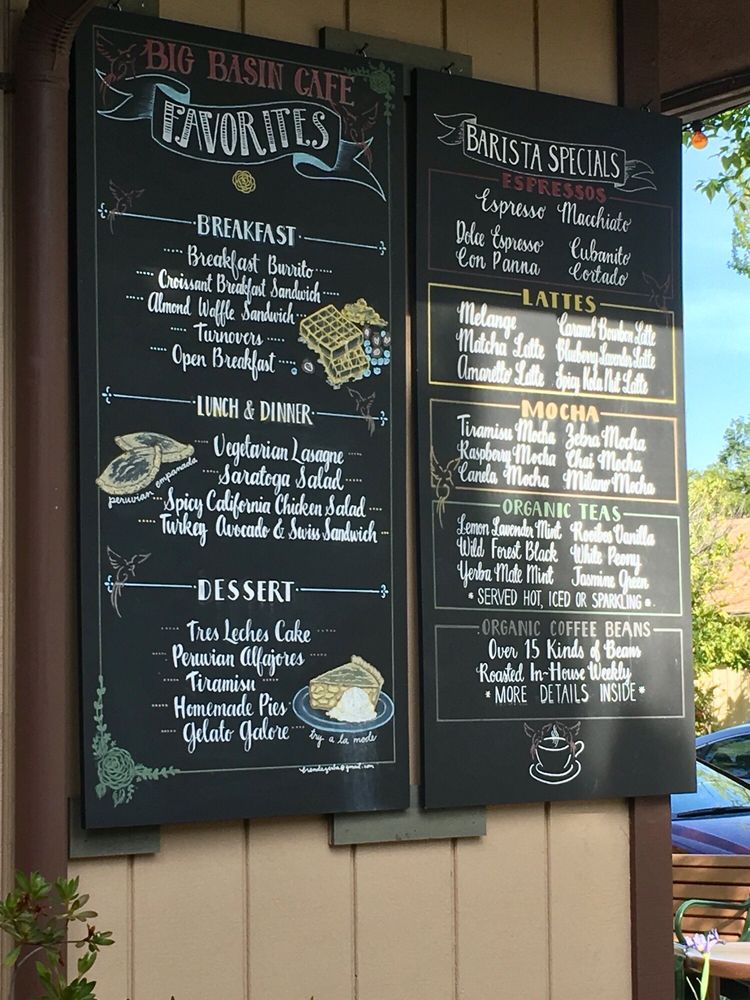 BIG BASIN CAFE
FAVORITES
BREAKFAST
Breakfast Burrito
Croissant Breakfast Sandwich
Almond Waffle Sandwich
Turnovers
Open Breakfast
LUNCH & DINNER
Vegetarian Lasagne
Saratoga Salad
Spicy California Chicken Salad
Turkey Avocado & Swiss Sandwich
peruvian empanada
DESSERT
Tres Leches Cake
Peruvian Alfajores
Tiramisu
Homemade Pies
Gelato Galore
try a la mode
BARISTA SPECIALS
ESPRESSOS
Espresso Macchiato
Dolce Espresso Cubanito
Con Panna Cortado
LATTES
Melange Caramel Bourbon Latte
Matcha Latte Blueberry Lavender Latte
Amaretto Latte Spicy Kola Nut Latte
MOCHA
Tiramisu Mocha Zebra Mocha
Raspberry Mocha Chai Mocha
Canela Mocha Milano Mocha
ORGANIC TEAS
Lemon Lavender Mint Rooibos Vanilla
Wild Forest Black White Peony
Yerba Mate Mint Jasmine Green
* SERVED HOT, ICED OR SPARKLING *
ORGANIC COFFEE BEANS
Over 15 Kinds of Beans
Roasted In-House Weekly
*MORE DETAILS INSIDE*